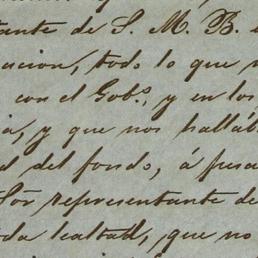 ante de S. M. B.
acion, todo lo que
con el Gobo., y en los
ia, y que nos hallab
d del fondo, á pesa
Sor. representante de
da lealtad, que no